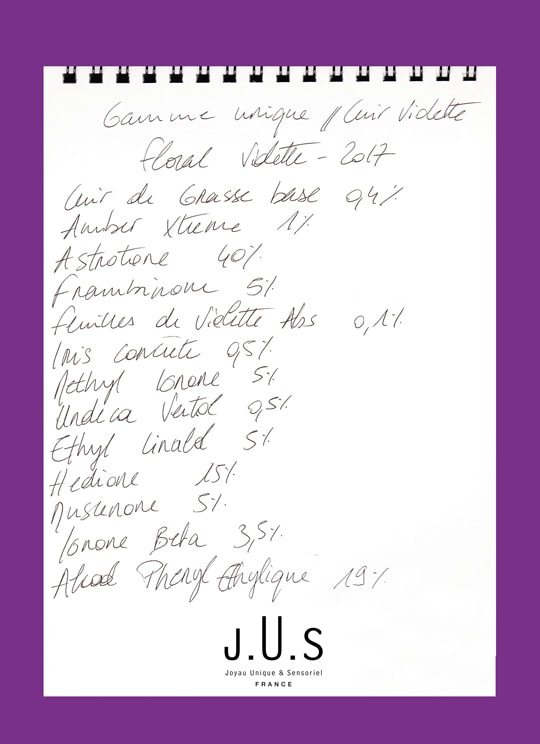 Gamme unique // Cuir Violette
Floral Violette - 2017
Cuir de Grasse base 0,4%
Amber Xtreme 1%
Astrotone 40%
Frambinone 5%
Feuilles de Violette Abs 0,1%
Iris Concrète 0,5%
Methyl Ionone 5%
Undeca Vertol 0,5%
Ethyl Linalol 5%
Hedione 15%
Muscenone 5%
Ionone Beta 3,5%
Alcool Phenyl Ethylique 19%
J.U.S
Joyau Unique & Sensoriel
FRANCE